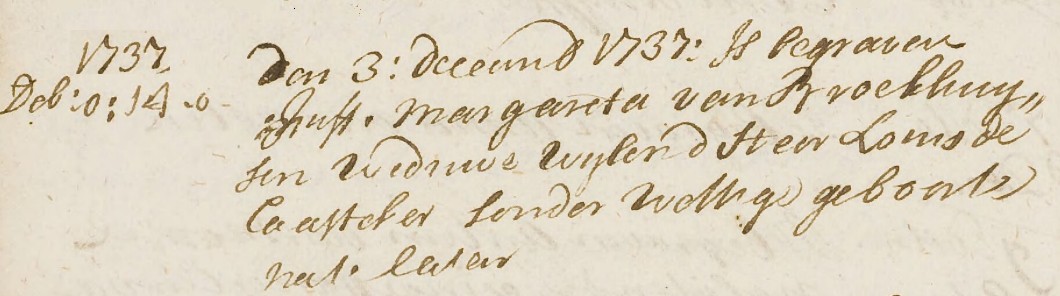 1737
Deb: 0: 14 - 0
Den 3: deceemb 1737: Js begraven
Juff. Margareta van Broekhuy„
sen Weduwe Wylend Heer Louis de
Caasteker sonder Wettige geboorte
nat. Later